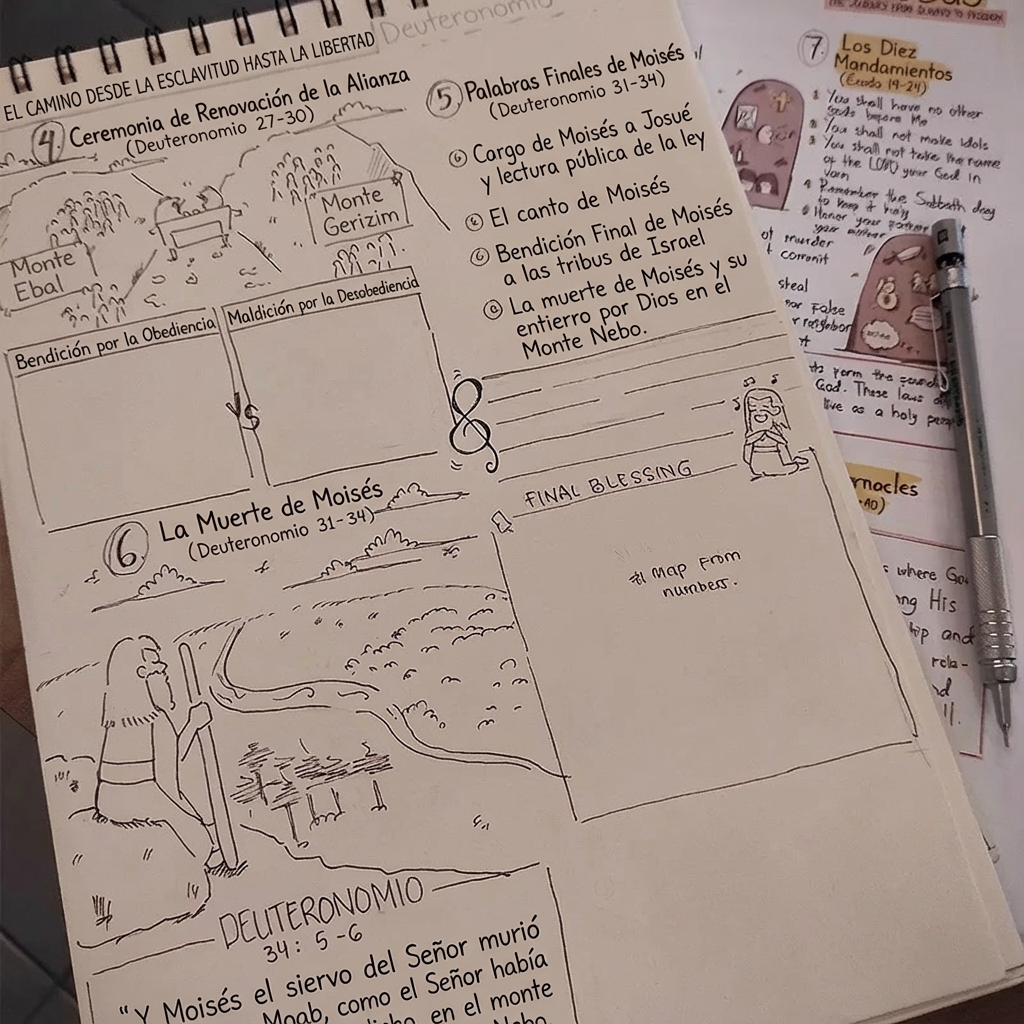 Deuteronomio
EL CAMINO DESDE LA ESCLAVITUD HASTA LA LIBERTAD
4. Ceremonia de Renovación de la Alianza
(Deuteronomio 27-30)
Monte
Ebal
Monte
Gerizim
Bendición por la Obediencia
VS
Maldición por la Desobediencia
5 Palabras Finales de Moisés
(Deuteronomio 31-34)
Cargo de Moisés a Josué
y lectura pública de la ley
El canto de Moisés
Bendición Final de Moisés
a las tribus de Israel
La muerte de Moisés y su
entierro por Dios en el
Monte Nebo.
FINAL BLESSING
Map From
numbers.
6 La Muerte de Moisés
(Deuteronomio 31-34)
DEUTERONOMIO
34: 5-6
"Y Moisés el siervo del Señor murió
Moab, como el Señor había
en el monte
Nebo
7. Los Diez
Mandamientos
(Éxodo 19-24)
You shall have no other
Gods before Me
You shall not make idols
You shall not take the name
of the LORD your God in
vain
Remember the Sabbath day
to keep it holy
Honor your
your
of murder
commit
steal
False
neighbor
form the
God. These laws
live as a holy
nacles
40)
where
His
and
rela-